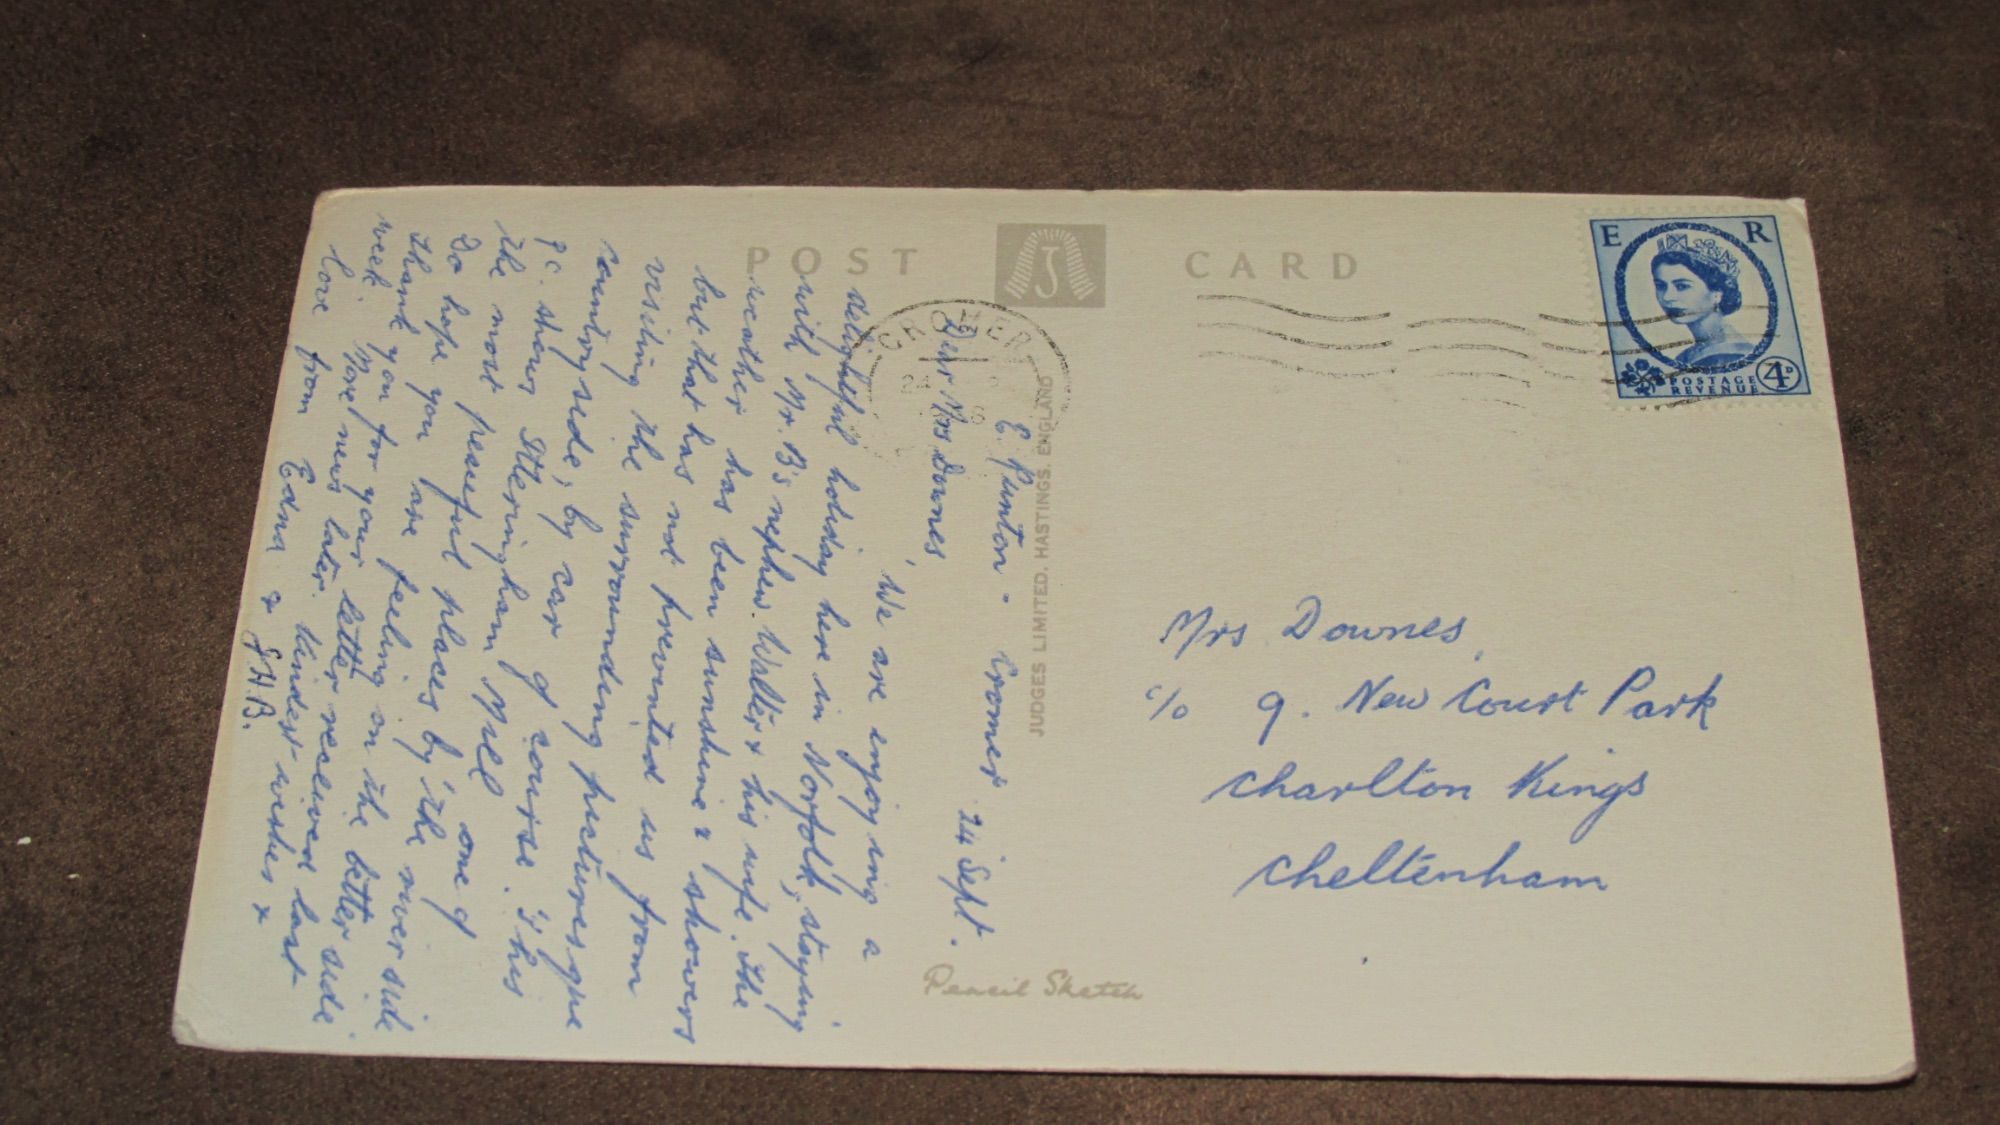 POST CARD
J
E R
POSTAGE
REVENUE
4D
CROMER
24
JUDGES LIMITED, HASTINGS, ENGLAND
Pencil Sketch
E. Runton - Cromer 24 Sept.
Dear Mrs Downes,
We are enjoying a
delightful holiday here in Norfolk, staying
with Mr. B's nephew. Walter & his wife. The
weather has been sunshine & showers
but that has not prevented us from
visiting the surrounding picturesque
countryside, by car of course. This
p.c. shows Itteringham Mill one of
the most peaceful places by the river side
Do hope you are feeling on the better side.
thank you for your letter received last
week. More news later. Kindest wishes &
love from Edna & J.H.B.
Mrs Downes,
c/o 9. New Court Park
Charlton Kings
Cheltenham